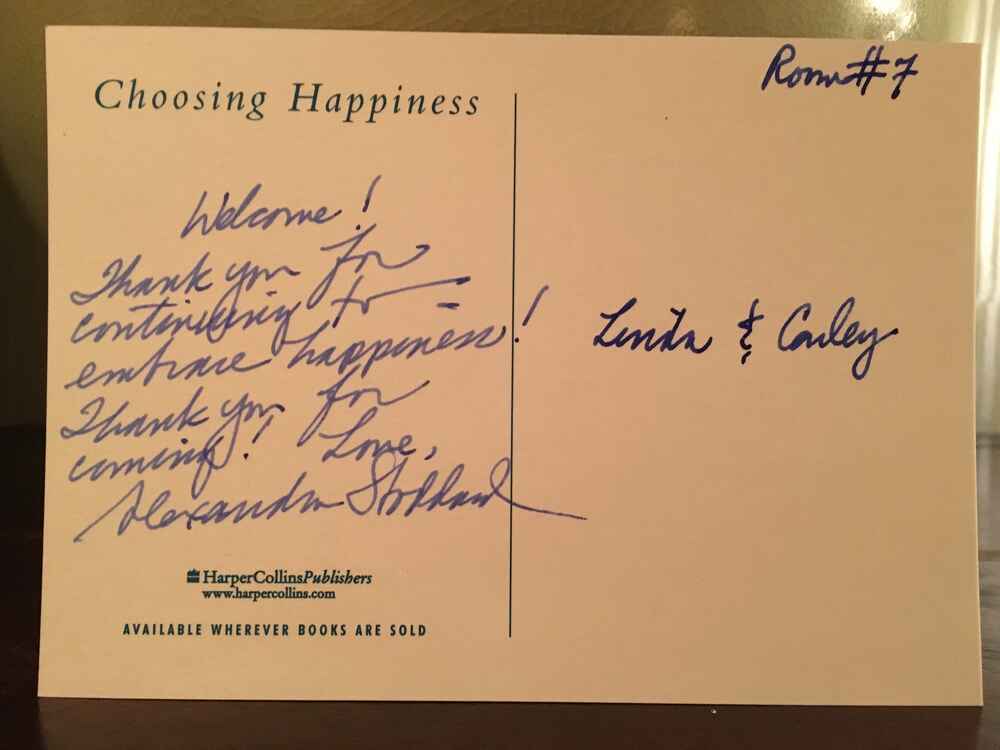 Choosing Happiness
Welcome!
Thank you for
continuing to
embrace happiness!
Thank you for
coming! Love,
Alexandra Stoddard
HarperCollinsPublishers
www.harpercollins.com
AVAILABLE WHEREVER BOOKS ARE SOLD
Room #7
Linda &